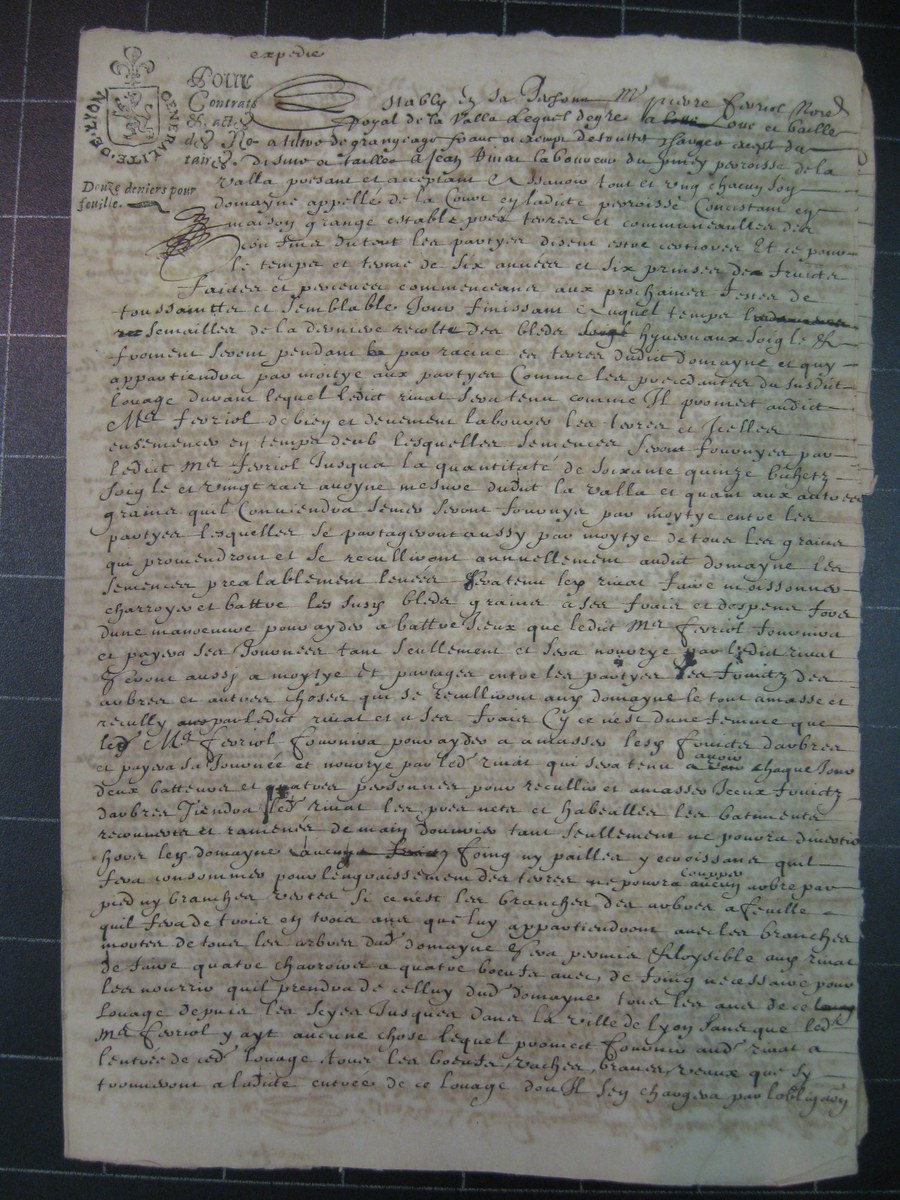 expedie
GENERALITE·DE·LYON
Pour
Contrats
& act.
des No
taires
Deuze deniers pour
feuille.
Estably en sa Personne Mre pierre fevriol Nore
Royal de la Valla Lequel de gre a Loue et baille
a tiltre de grangeage franc et exempt de touttes charges
disme et tailles A Jean rivat laboureur du paroisse de la
Valla present et acceptant Assavoir tout et ung chacun son
domayne appellé de la Cour en ladicte parroisse Concistant en
maison grange estable prés terres et communeaultes des
dictent les partyes disent estre certiores Et ce pour
le temps et terme de six années et six prinses de fruicts
faictes et perceues commenceans aux prochaines festes de
toussaintts et semblable Jour finissant Auquel temps
semailles de la derniere recolte des bleds hyvernaux Soigle &
froment seront pendant par racine es terres dudict domayne et quy
appartiendra par moitye aux partyes Comme les precedantes du susdit
louage durant lequel ledict rivat sera tenu comme Il promect audict
Mre fevriol de bien et deuement labourer les terres et Icelles
ensemencer en temps deub lesquelles semences seront fournyes par
ledict Mre fevriol Jusqua la quantitaté de soixante quinze bichetz
soigle et vingt ras avoyne mesure dudict la valla et quant aux autres
grains quil Conviendra semer seront fournys par moytye entre les
partyes lesquelles se partageront aussy par moytye de tous les grains
qui proviendront et se recullivont annuellement audict domayne les
semences prealablement levées Sera tenu ledict rivat faire moissonner
charroyer et battre les susdicts bleds grains à ses frais et despens fors
dune manoeuvre pour ayder a battre Iceux que ledict Mre fevriol fournira
et payera ses Journées tant seullement et sera nourrye par ledict rivat
Seront aussy a moytye Et partages entre les partyes les fruictz des
arbres et autres choses qui se recullivont audict domayne le tout amasse et
recully par ledict rivat et a ses frais Cy ce nest dune femme que
led Mre fevriol fournira pour ayder a amasser lesdicts fruicts darbres
et payera sa Journée et nourrye par led rivat qui sera tenu avoir chaque Jour
deux batteurs et quatres personnes pour recullir et amasser Iceux fruictz
darbres Tiendra led rivat les prés nets et habeallés les batiments
recouverts et ramenés de main douvrier tant seullement ne pourra divertir
hors ledict domayne aucungs foing ny pailles y croissans quil
fera consommer pour lengraissement des terres ne pourra coupper aucun arbre par
pied ny branches vertes Si ce nest les branches des arbres a feuille
quil fera de trois en trois ans que luy appartiendront avec les branches
mortes de tous les arbres dud domayne Sera permis & loysible audict rivat
de faire quatre charroires a quatre boeufs avec de foing nécessaire pour
les nourrir quil prendra de celluy dud domayne tous les ans de ce
louage depuis les scyes Jusques dans la ville de Lyon sans que led
Mre fevriol y ayt aucune chose lequel promect fournir aud rivat a
lentrée de ced louage tous les boeufs vaches braves veaux que sy
trouveront a ladite entrée de ce louage dont Il sen chargera par lobligaon